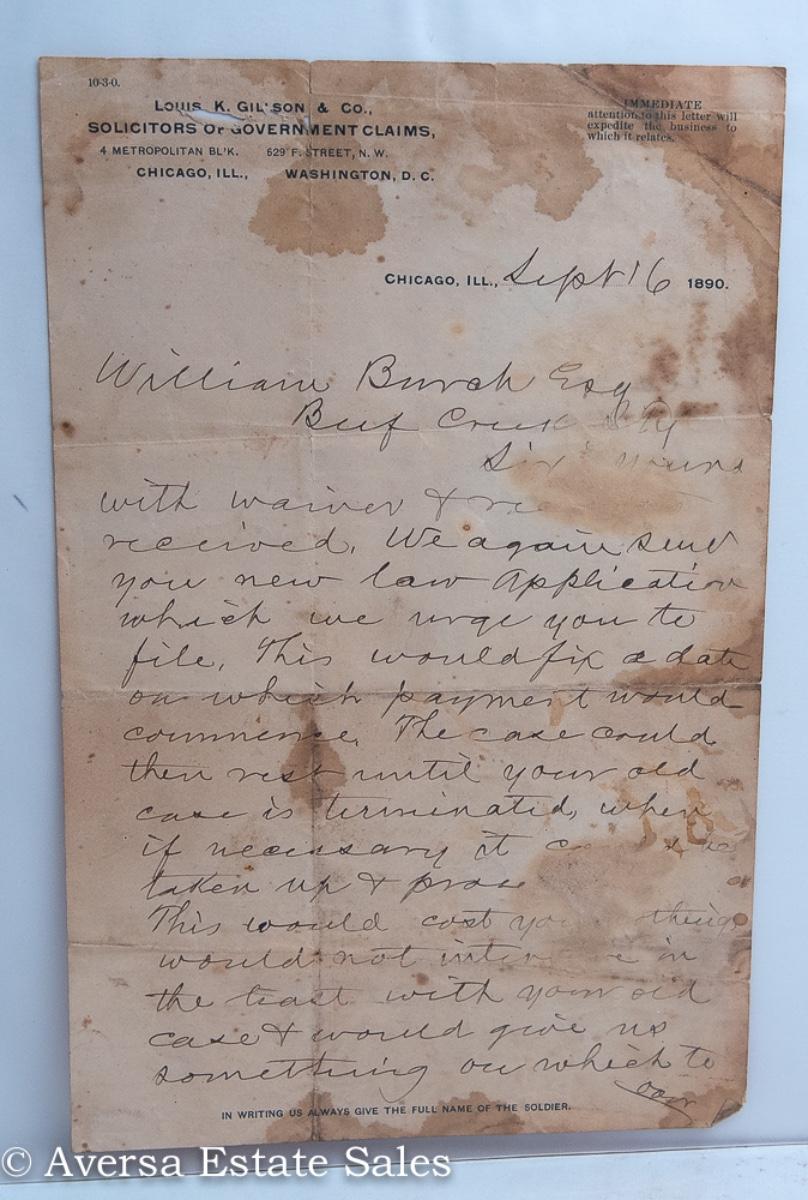 10-3-0.
LOUIS K. GILSON & CO.,
SOLICITORS OF GOVERNMENT CLAIMS,
4 METROPOLITAN BL'K. 629 F. STREET, N. W.
CHICAGO, ILL., WASHINGTON, D. C.
IMMEDIATE
attention to this letter will
expedite the business to
which it relates.
CHICAGO, ILL., Sept 16 1890.
William Burch Esq
Beef Creek
Sir yours
with waiver &
received. We again send
you new law Application
which we urge you to
file. This would fix a date
on which payment would
commence. The case could
then rest until your old
case is terminated, when
if necessary it
taken up &
This would cost you
would not in
the least with your old
case & would give us
something on which to
IN WRITING US ALWAYS GIVE THE FULL NAME OF THE SOLDIER.
© Aversa Estate Sales